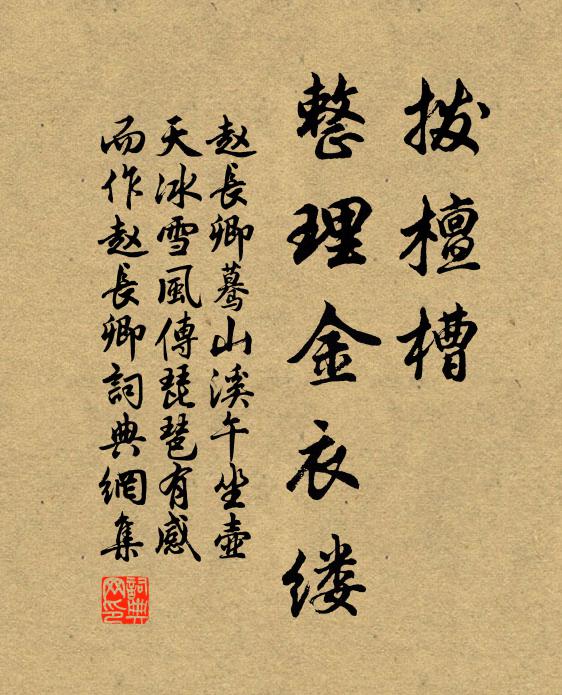 拨檀槽
整理金衣缕
赵長卿蓦山溪午坐壶
天冰雪風傳琵琶有感
而作赵長卿詞典網集
詞典网印